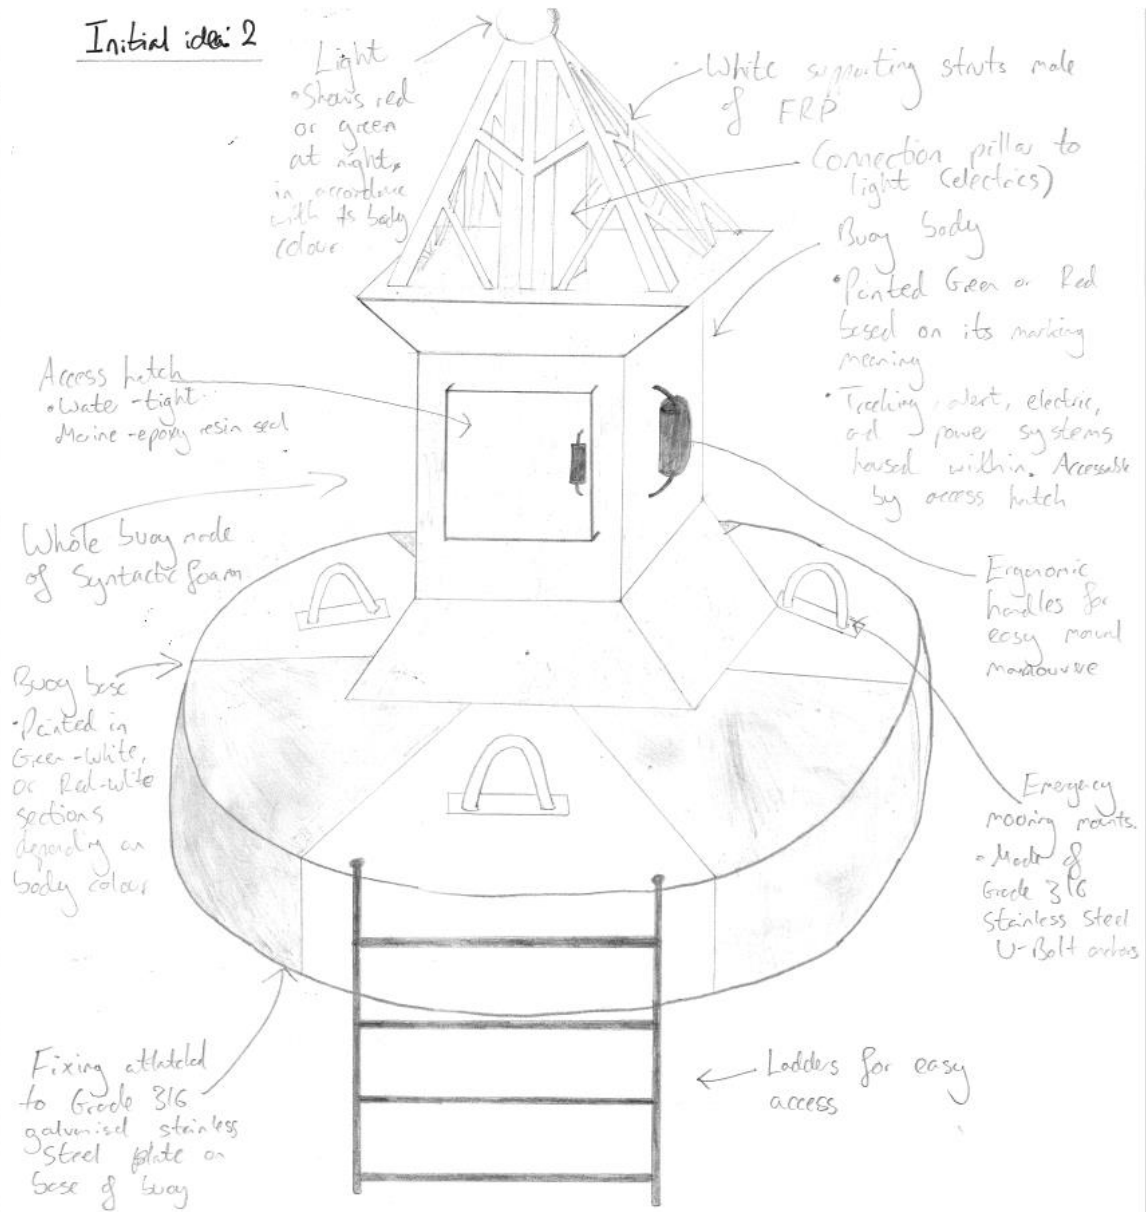 Initial idea: 2
Light
• Shows red
or green
at night,
in accordance
with its body
colour
White supporting struts made
of FRP
Connection pillar to
light (electrics)
Buoy body
• Painted Green or Red
based on its marking
meaning
• Tracking, alert, electric,
and power systems
housed within. Accessable
by access hatch
Access hatch
• Water-tight
Marine-epoxy resin seal
Whole buoy made
of Syntactic foam
Ergonomic
handles for
easy manual
manouvre
Buoy base
• Painted in
Green-white,
or Red-white
sections
depending on
body colour
Emergency
mooring mounts.
• Made of
Grade 316
Stainless Steel
U-Bolt anchors
Fixing attatched
to Grade 316
galvanised stainless
Steel plate on
base of buoy
Ladders for easy
access